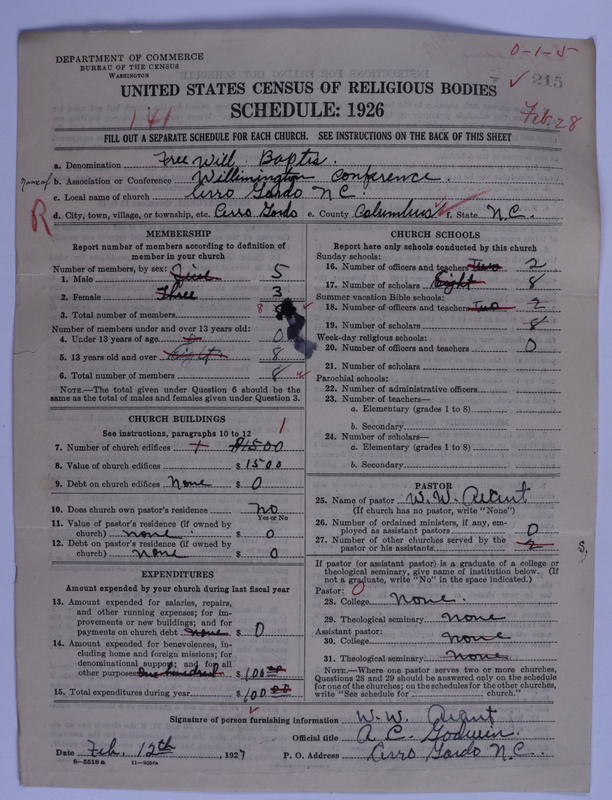 0-1-5
DEPARTMENT OF COMMERCE
BUREAU OF THE CENSUS
WASHINGTON
215
UNITED STATES CENSUS OF RELIGIOUS BODIES
SCHEDULE: 1926
141
Feb. 28
FILL OUT A SEPARATE SCHEDULE FOR EACH CHURCH. SEE INSTRUCTIONS ON THE BACK OF THIS SHEET
a. Denomination Free Will Baptis.
Name of b. Association or Conference Willimington Conference.
c. Local name of church Cerro Gordo N C.
R d. City, town, village, or township, etc. Cerro Gordo e. County Columbus f. State N.C.
MEMBERSHIP
Report number of members according to definition of
member in your church
Number of members, by sex:
1. Male Five 5
2. Female Three 3
3. Total number of members 8 8
Number of members under and over 13 years old:
4. Under 13 years of age 0 0
5. 13 years old and over Eight 8
6. Total number of members 8
NOTE.—The total given under Question 6 should be the
same as the total of males and females given under Question 3.
CHURCH BUILDINGS
See instructions, paragraphs 10 to 12 1
7. Number of church edifices 1 $1500
8. Value of church edifices $ 1500
9. Debt on church edifices None $ 0
10. Does church own pastor's residence no
Yes or No
11. Value of pastor's residence (if owned by
church) none $ 0
12. Debt on pastor's residence (if owned by
church) none $ 0
EXPENDITURES
Amount expended by your church during last fiscal year
13. Amount expended for salaries, repairs,
and other running expenses; for im-
provements or new buildings; and for
payments on church debt none $ 0
14. Amount expended for benevolences, in-
cluding home and foreign missions; for
denominational support; and for all
other purposes one hundred $ 100 00
15. Total expenditures during year $ 100 00
CHURCH SCHOOLS
Report here only schools conducted by this church
Sunday schools:
16. Number of officers and teachers Two 2
17. Number of scholars Eight 8
Summer vacation Bible schools:
18. Number of officers and teachers Two 2
19. Number of scholars 8
Week-day religious schools:
20. Number of officers and teachers 0
21. Number of scholars
Parochial schools:
22. Number of administrative officers
23. Number of teachers—
a. Elementary (grades 1 to 8)
b. Secondary
24. Number of scholars—
a. Elementary (grades 1 to 8)
b. Secondary
PASTOR
25. Name of pastor W. W.
(If church has no pastor, write "None")
26. Number of ordained ministers, if any, em-
ployed as assistant pastors 0
27. Number of other churches served by the
pastor or his assistants 2
If pastor (or assistant pastor) is a graduate of a college or
theological seminary, give name of institution below. (If
not a graduate, write "No" in the space indicated.)
Pastor: 0
28. College None.
29. Theological seminary none
Assistant pastor:
30. College none
31. Theological seminary none
NOTE.—Where one pastor serves two or more churches,
Questions 28 and 29 should be answered only on the schedule
for one of the churches; on the schedules for the other churches,
write "See schedule for church."
Signature of person furnishing information W. W.
Official title A. C. Godwin
Date Feb. 12th, 1927 P. O. Address Cerro Gordo N.C.
8-5518 a